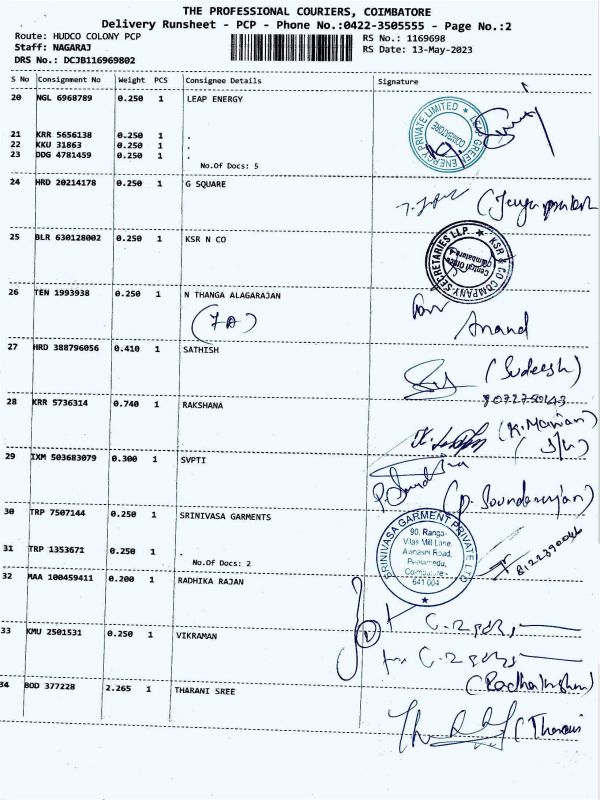 THE PROFESSIONAL COURIERS, COIMBATORE
Delivery Runsheet - PCP - Phone No.:0422-3505555 - Page No.:2
Route: HUDCO COLONY PCP RS No.: 1169698
Staff: NAGARAJ RS Date: 13-May-2023
DRS No.: DCJB116969802
S No Consignment No Weight PCS Consignee Details Signature
20 NGL 6968789 0.250 1 LEAP ENERGY
LEAP GREEN ENERGY PRIVATE LIMITED ★
COIMBATORE
21 KRR 5656138 0.250 1 .
22 KKU 31863 0.250 1 .
23 DDG 4781459 0.250 1 .
No.Of Docs: 5
24 HRD 20214178 0.250 1 G SQUARE
25 BLR 630128002 0.250 1 KSR N CO
KSR & CO COMPANY SECRETARIES LLP ★
Central Office
Coimbatore-4
26 TEN 1993938 0.250 1 N THANGA ALAGARAJAN
Anand
27 HRD 388796056 0.410 1 SATHISH
(Sudeesh)
28 KRR 5736314 0.740 1 RAKSHANA
29 IXM 503683079 0.300 1 SVPTI
(P. Soundarajan)
30 TRP 7507144 0.250 1 SRINIVASA GARMENTS
SRINIVASA GARMENT PRIVATE LTD ★
90, Ranga-
Vilas Mill Lane,
Avinashi Road,
Peelamedu,
Coimbatore -
641 004
8122390046
31 TRP 1353671 0.250 1 .
No.Of Docs: 2
32 MAA 100459411 0.200 1 RADHIKA RAJAN
33 KMU 2501531 0.250 1 VIKRAMAN
34 BOD 377228 2.265 1 THARANI SREE
(Tharani